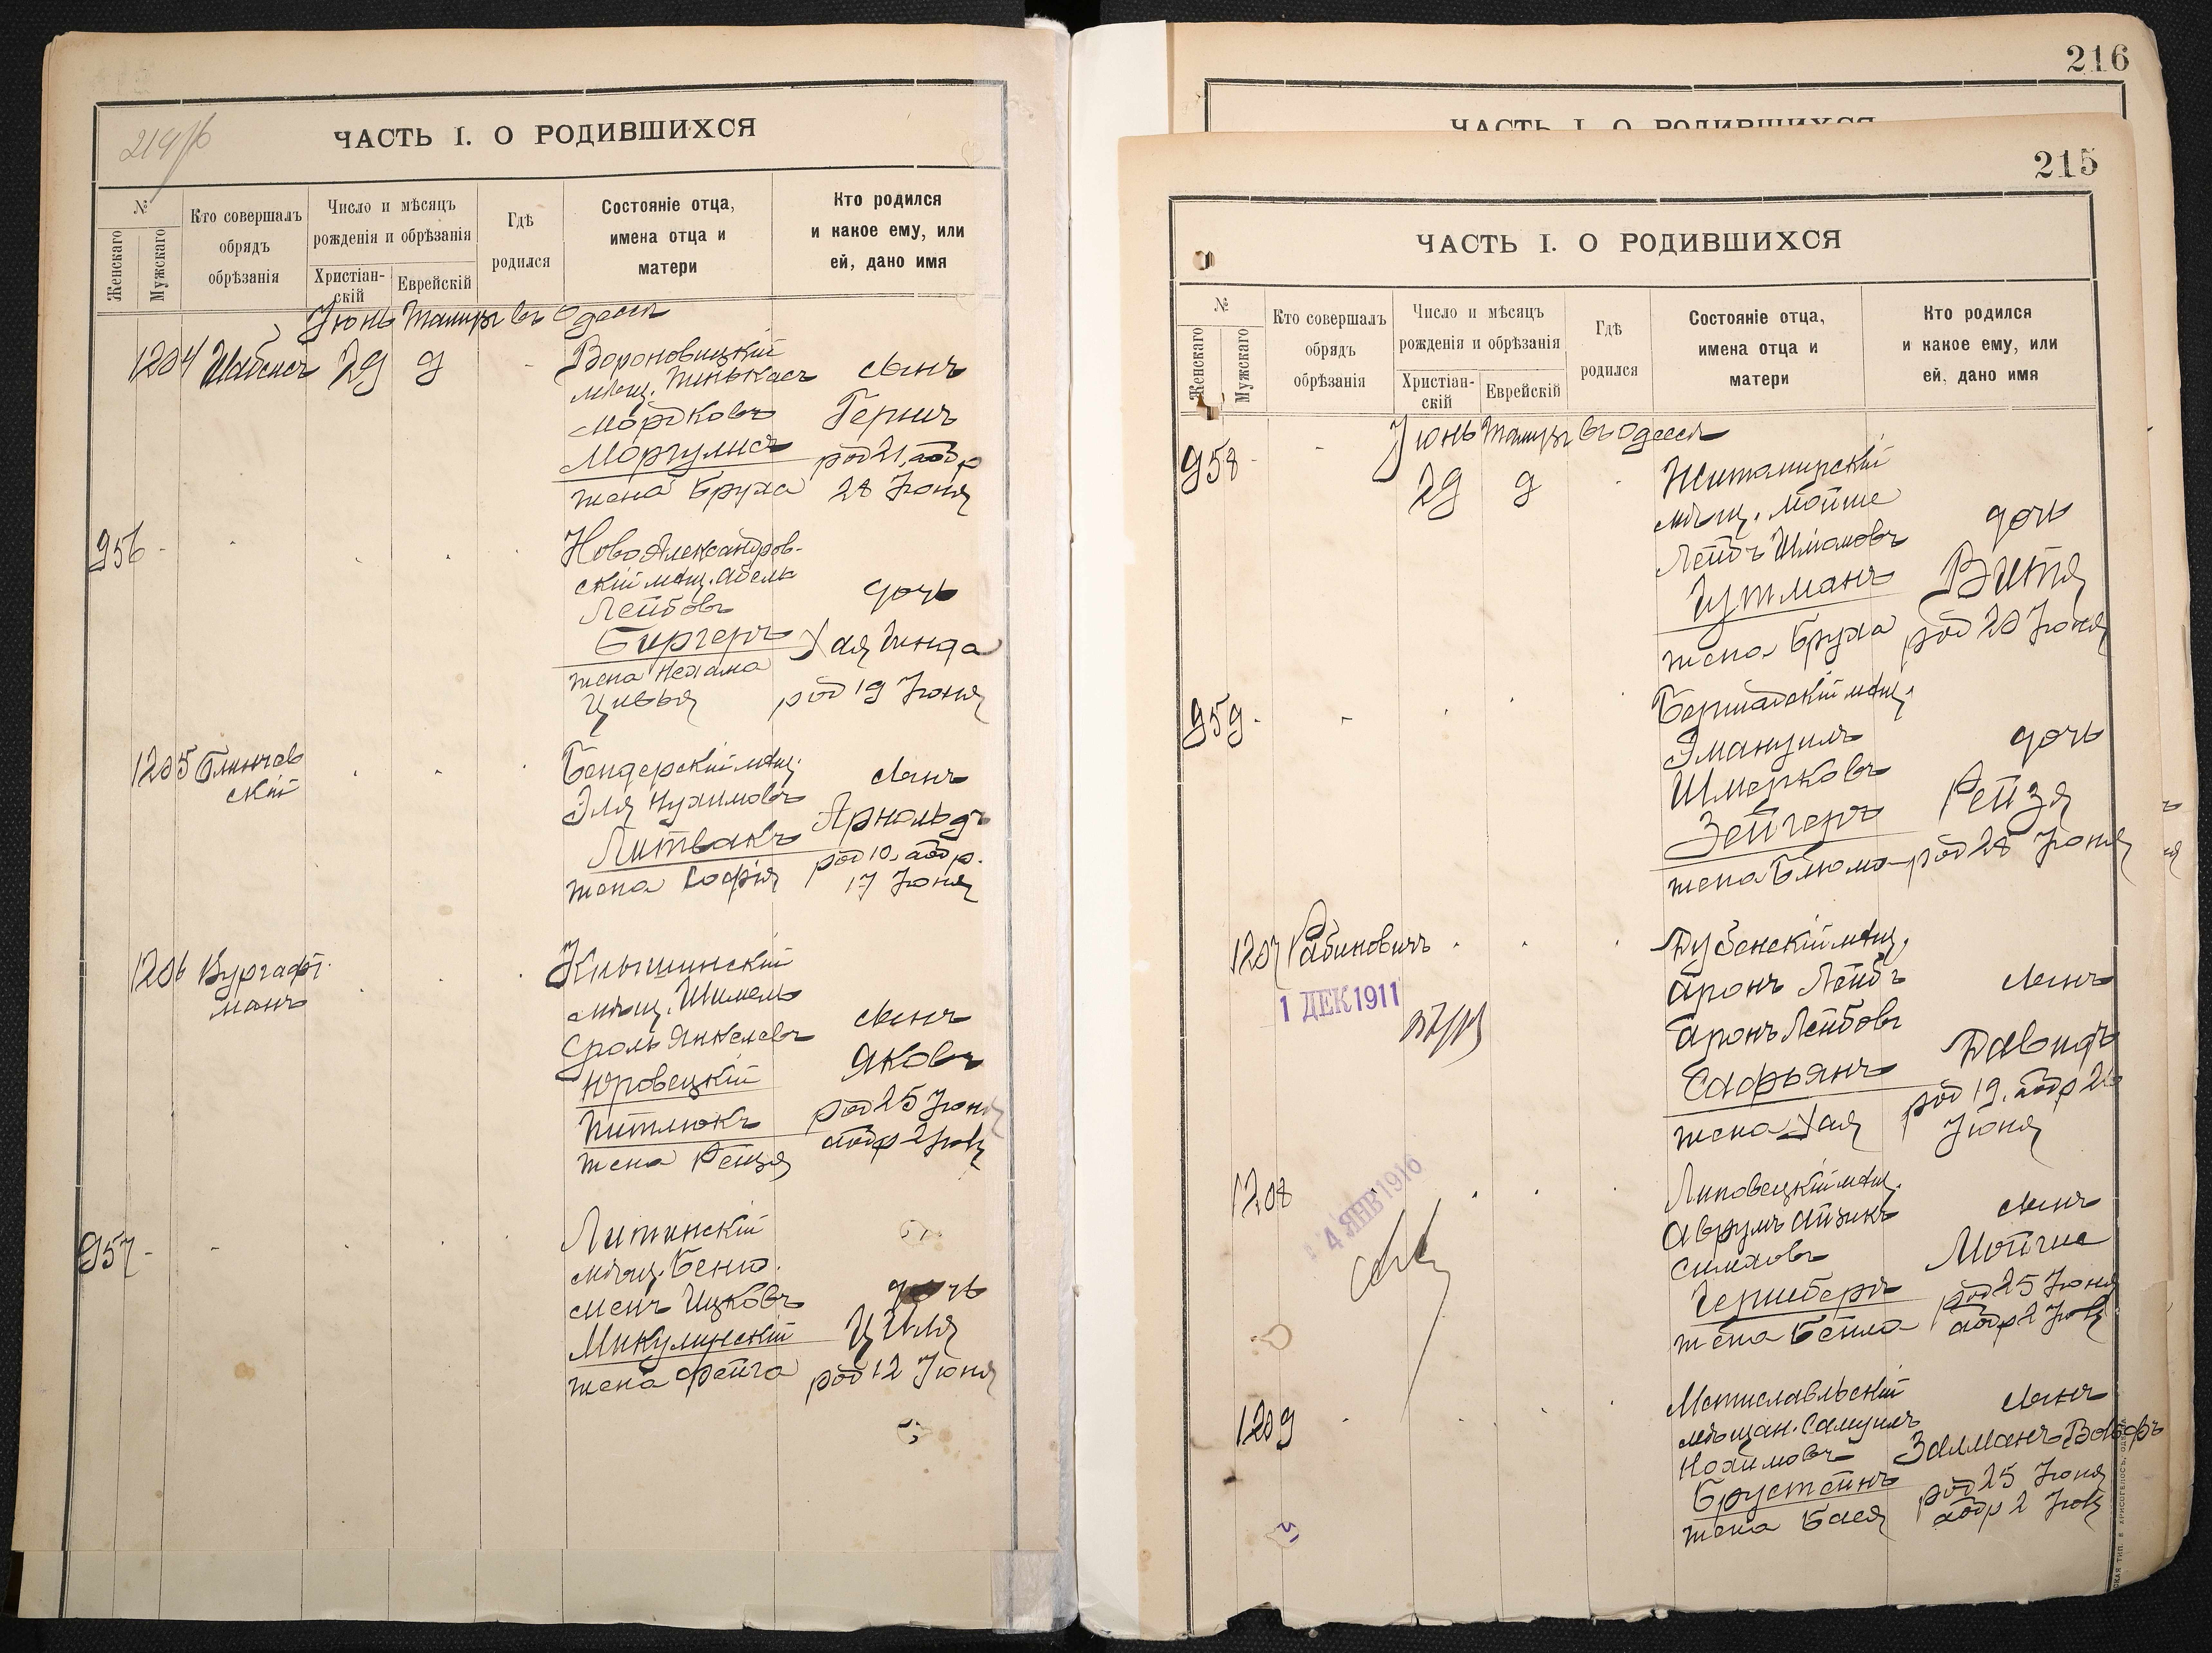 214/б
ЧАСТЬ I. О РОДИВШИХСЯ
№
Женскаго
Мужскаго
Кто совершалъ
обрядъ
обрѣзанія
Число и мѣсяцъ
рожденія и обрѣзанія
Христіан-
скій
Еврейскій
Гдѣ
родился
Состояніе отца,
имена отца и
матери
Кто родился
и какое ему, или
ей, дано имя
Іюнь Тамузъ въ Одессѣ
1204 Шабсисъ 29 9
Вороновицкій
мѣщ. Пинькасъ
Мордковъ
Моргулисъ
жена Бруха
сынъ
Герпъ
род 21, обр
28 Іюня
956
Новоалександров-
скій мѣщ. Абель
Лейбовъ
Биргеръ
жена Нехама
Цивья
дочь
Хая Гинда
род 19 Іюня
1205
скій
Бендерскій мѣщ.
Эля Нухимовъ
Литвакъ
жена Софія
сынъ
Арнольдъ
род 10, обр.
17 Іюня
1206 Вургафт
манъ
Кнышинскій
мѣщ. Шимель
Сроль Янкелевъ
Юровецкій
Питлюкъ
жена Рейзя
сынъ
Яковъ
род 25 Іюня
обр 2 Іюля
957
Литинскій
мѣщ. Беню
менъ Ицковъ
Микулинскій
жена Фейга
дочь
Циля
род 12 Іюня
216
ЧАСТЬ I. О РОДИВШИХСЯ
215
ЧАСТЬ I. О РОДИВШИХСЯ
№
Женскаго
Мужскаго
Кто совершалъ
обрядъ
обрѣзанія
Число и мѣсяцъ
рожденія и обрѣзанія
Христіан-
скій
Еврейскій
Гдѣ
родился
Состояніе отца,
имена отца и
матери
Кто родился
и какое ему, или
ей, дано имя
Іюнь Тамузъ въ Одессѣ
958 29 9
Житомирскій
мѣщ. Мойше
Лейбъ Шимоновъ
Гутманъ
жена Бруха
дочь
Витя
род 20 Іюня
959
Бершадскій мѣщ.
Эмануилъ
Шмерковъ
Зейгеръ
жена Блюма
дочь
Рейзя
род 28 Іюня
1207 Рабиновичъ
1 ДЕК 1911
Дубенскій мѣщ.
Аронъ Лейбъ
Аронъ Лейбовъ
Сафьянъ
жена Хая
сынъ
Давидъ
род 19, обр 26
Іюня
1208
4 ЯНВ 1916
Липовецкій мѣщ.
Аврумъ Айзикъ
Симховъ
Гершбергъ
жена Бейла
сынъ
Мойше
род 25 Іюня
обр 2 Іюля
1209
Мстиславльскій
мѣщан. Самуилъ
Нохимовъ
Брустейнъ
жена Бася
сынъ
Залманъ Вольфъ
род 25 Іюня
обр 2 Іюля